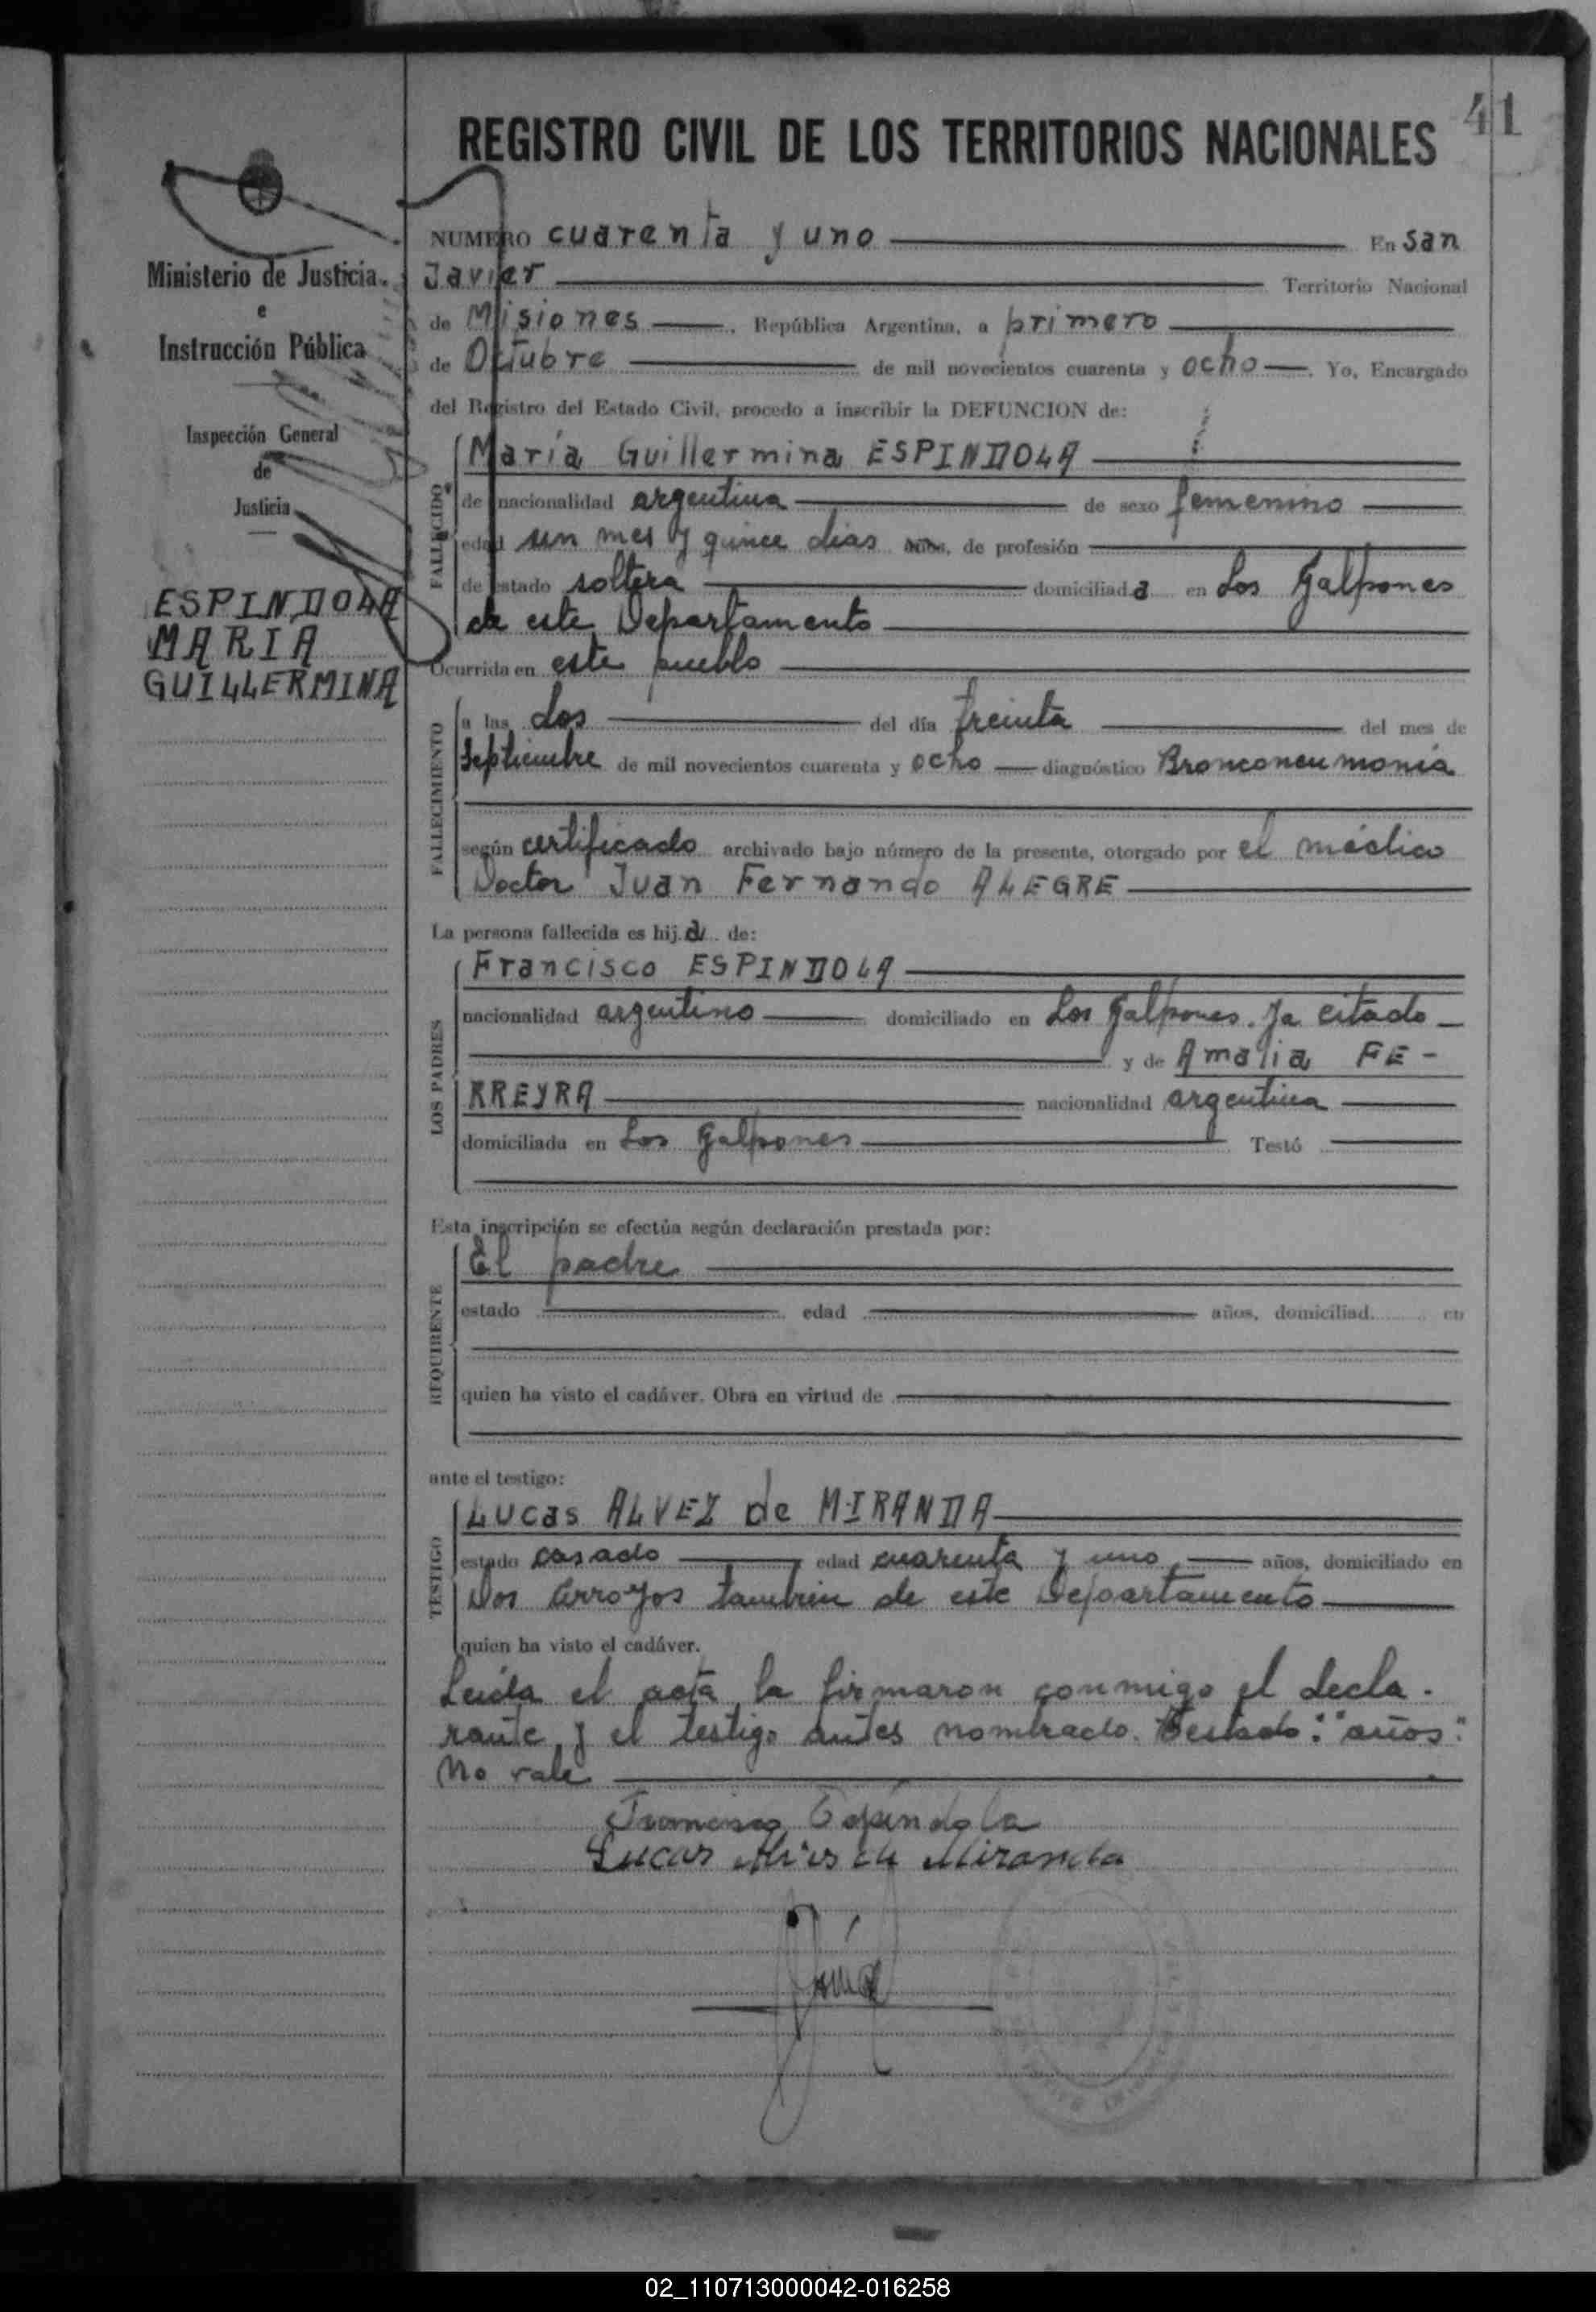 41
REGISTRO CIVIL DE LOS TERRITORIOS NACIONALES
Ministerio de Justicia
e
Instrucción Pública
Inspección General
de
Justicia
ESPINDOLA
MARIA
GUILLERMINA
NUMERO cuarenta y uno En San
Javier Territorio Nacional
de Misiones, República Argentina, a primero
de Octubre de mil novecientos cuarenta y ocho. Yo, Encargado
del Registro del Estado Civil, procedo a inscribir la DEFUNCION de:
FALLECIDO
María Guillermina ESPINDOLA
de nacionalidad argentina de sexo femenino
edad un mes y quince dias años, de profesión
de estado soltera domiciliada en Los Galpones
de este Departamento
Ocurrida en este pueblo
FALLECIMIENTO
a las dos del día treinta del mes de
Septiembre de mil novecientos cuarenta y ocho diagnóstico Bronconeumonía
según certificado archivado bajo número de la presente, otorgado por el médico
Doctor Juan Fernando ALEGRE
La persona fallecida es hija de:
LOS PADRES
Francisco ESPINDOLA
nacionalidad argentino domiciliado en Los Galpones. Ya citado
y de Amalia FE-
RREYRA nacionalidad argentina
domiciliada en Los Galpones Testó
Esta inscripción se efectúa según declaración prestada por:
REQUIRENTE
El padre
estado edad años, domiciliad en
quien ha visto el cadáver. Obra en virtud de
ante el testigo:
TESTIGO
Lucas ALVEZ de MIRANDA
estado casado edad cuarenta y uno años, domiciliado en
Dos Arroyos tambien de este Departamento
quien ha visto el cadáver.
Leida el acta la firmaron conmigo el decla-
rante y el testigo antes nombrado. Testado: "años":
No vale
Francisco Espindola
Lucas de Miranda
02_110713000042-016258